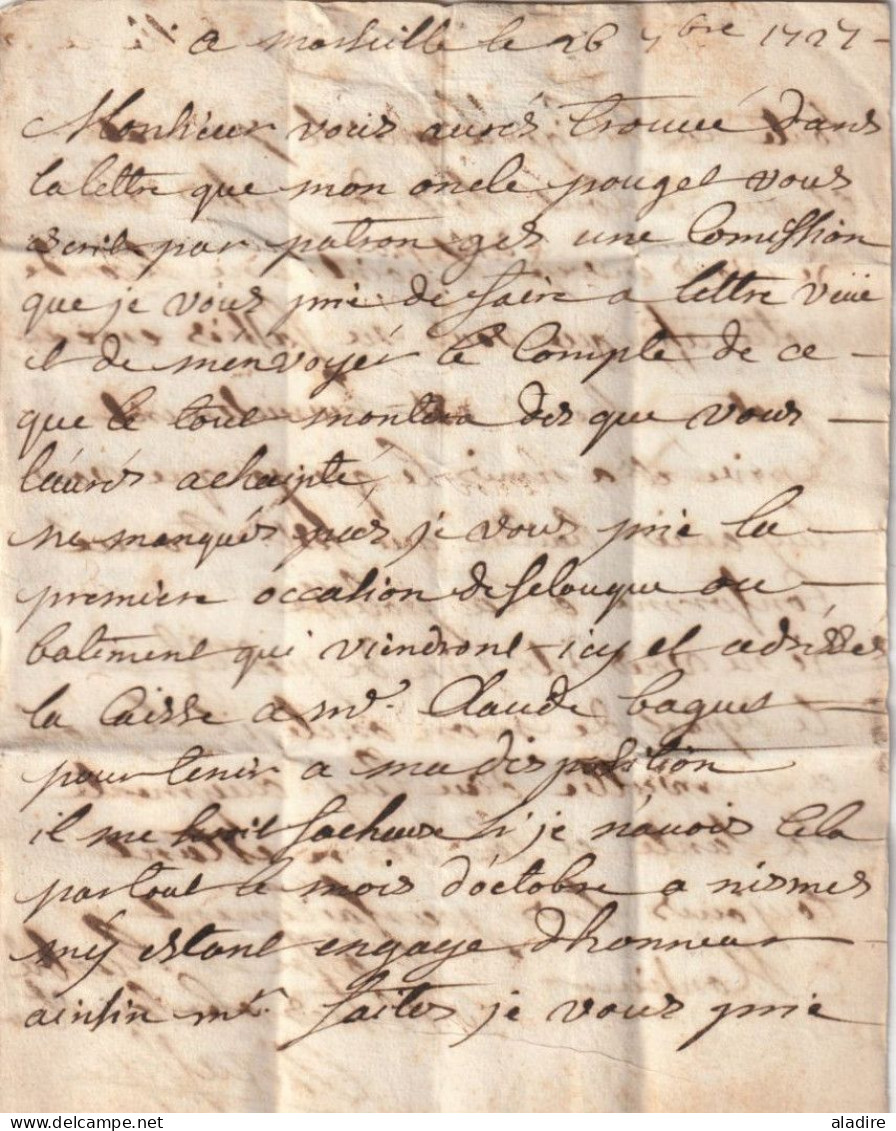 a marseille le 26 7bre 1727
Monsieur vous aurés trouué dans
la lettre que mon oncle pouget vous
escrit par patron ges une Comission
que je vous prie de faire a lettre veüe
et de menvoyér le Compte de ce
que le tout montera des que vous
laurés achaipté,
ne manqués pas je vous prie la
premiere occasion de felouque ou
batiment qui viendront icy et adréssés
la Caisse a mr. Claude baguet
pour tenir a ma disposition
il me seroit facheux si je náuois Cela
partout le mois dóctobre a nismes
mÿ estant engage dhonneur
ainsin mr. faites je vous prie
aladire